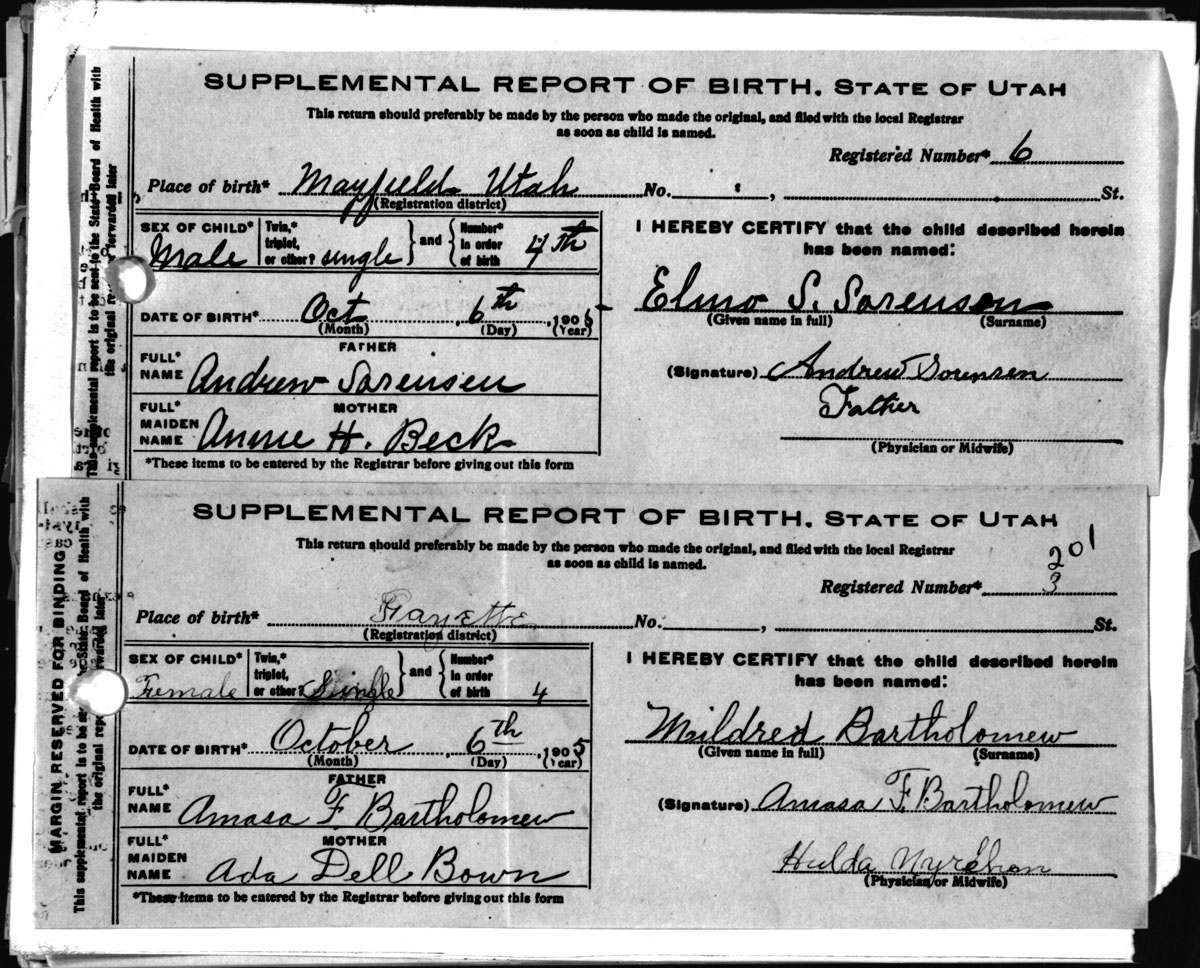 SUPPLEMENTAL REPORT OF BIRTH. STATE OF UTAH
This return should preferably be made by the person who made the original, and filed with the local Registrar
as soon as child is named.
Registered Number* 6
Place of birth* Mayfield Utah No. , St.
(Registration district)
SEX OF CHILD* Male
Twin,* triplet, or other? single
and
Number* in order of birth 4th
DATE OF BIRTH* Oct 6th, 1905
(Month) (Day) (Year)
FATHER
FULL* NAME Andrew Sorensen
MOTHER
FULL* MAIDEN NAME Annie H. Beck
*These items to be entered by the Registrar before giving out this form
I HEREBY CERTIFY that the child described herein
has been named:
Elmo S. Sorensen
(Given name in full) (Surname)
(Signature) Andrew Sorensen
Father
(Physician or Midwife)
This supplemental report is to be sent to the State Board of Health with
the original forwarded later
SUPPLEMENTAL REPORT OF BIRTH. STATE OF UTAH
This return should preferably be made by the person who made the original, and filed with the local Registrar
as soon as child is named.
201
Registered Number* 3
Place of birth* Fayette No. , St.
(Registration district)
SEX OF CHILD* Female
Twin,* triplet, or other? Single
and
Number* in order of birth 4
DATE OF BIRTH* October 6th, 1905
(Month) (Day) (Year)
FATHER
FULL* NAME Amasa F Bartholomew
MOTHER
FULL* MAIDEN NAME Ada Dell Bown
*These items to be entered by the Registrar before giving out this form
I HEREBY CERTIFY that the child described herein
has been named:
Mildred Bartholomew
(Given name in full) (Surname)
(Signature) Amasa F. Bartholomew
Hulda
(Physician or Midwife)
MARGIN RESERVED FOR BINDING
This supplemental report is to be State Board of Health with
the original later